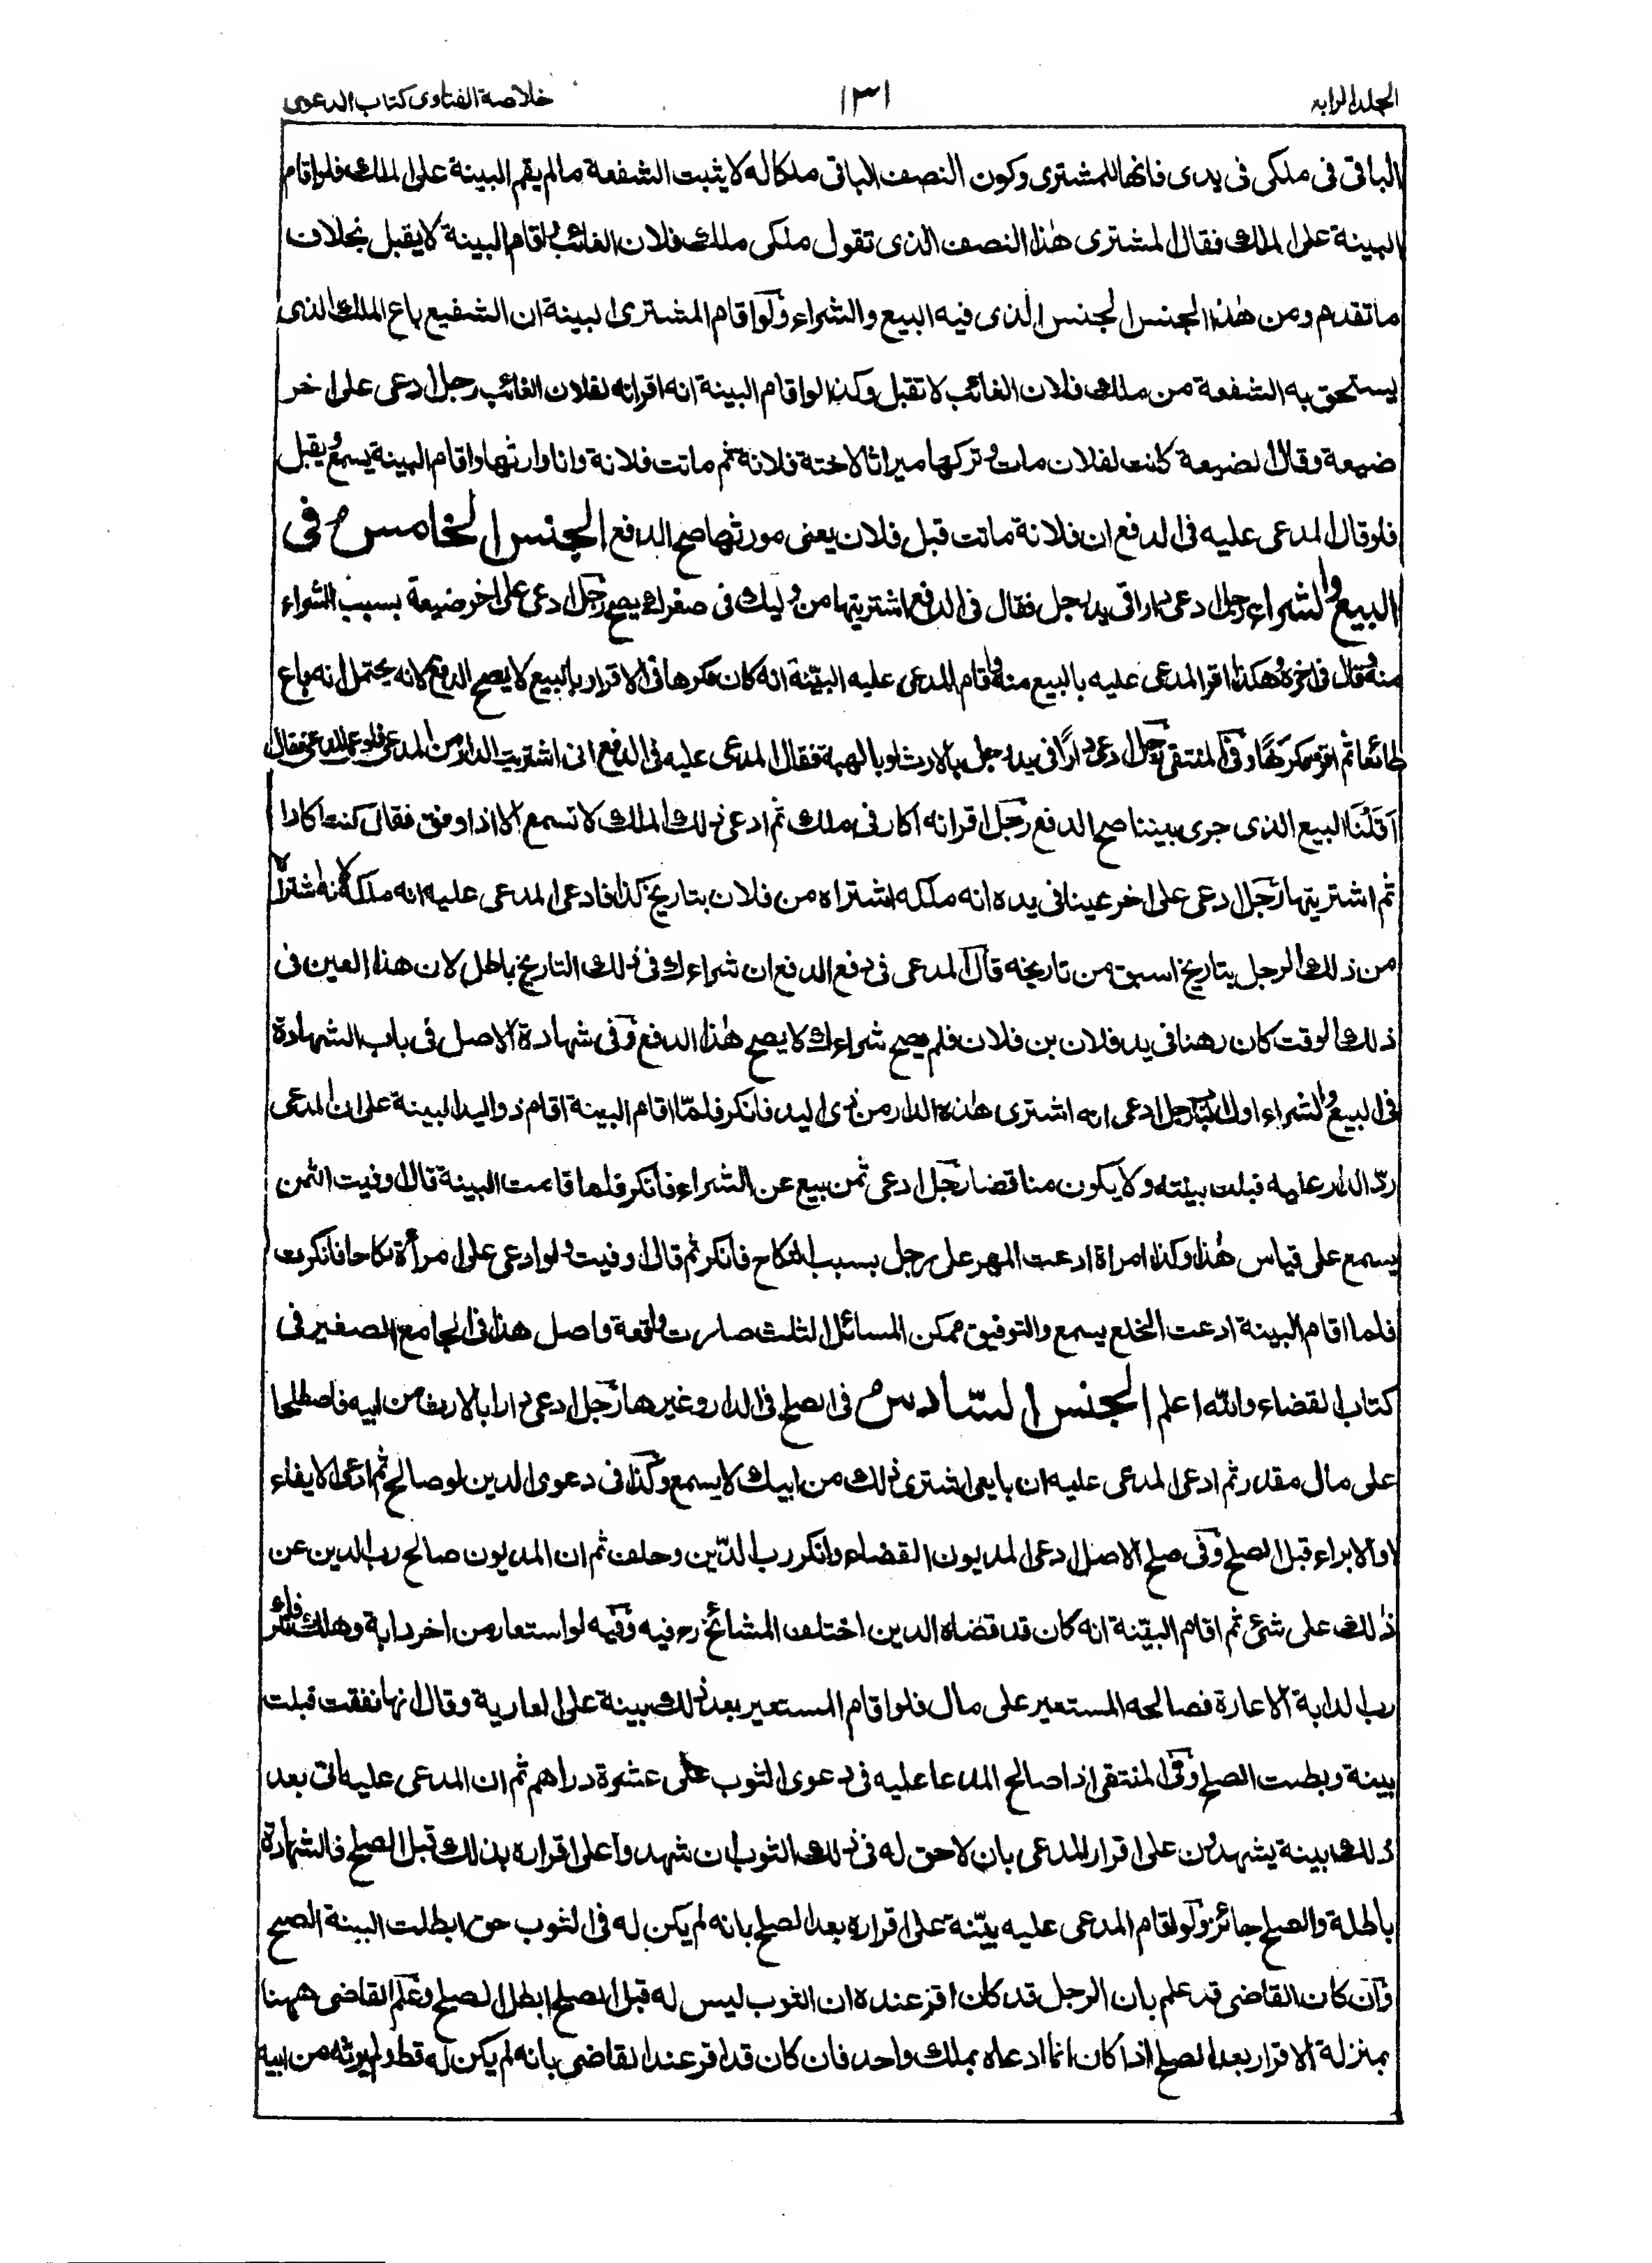 المجلد الرابع
١٣١
خلاصة الفتاوى كتاب الدعوى
الباقى فى ملكى فى يدى فانها للمشترى وكون النصف الباقى ملكا له لا يثبت الشفعة مالم يقم البينة على الملك فلو اقام
البينة على الملك فقال المشترى هٰذا النصف الذى تقول ملكى ملك فلان الغائب واقام البينة لا يقبل بخلاف
ما تقدم ومن هٰذا الجنس الجنس الذى فيه البيع والشراء ولو اقام المشترى البينة ان الشفيع باع الملك الذى
يستحق به الشفعة من ملك فلان الغائب لا تقبل وكذا لو اقام البينة انه اقر انه لفلان الغائب رجل ادعى على اخر
ضيعة وقال الضيعة كانت لفلان مات وتركها ميراثا لاخته فلانة ثم ماتت فلانة وانا وارثها واقام البينة يسمع ويقبل
فلو قال المدعى عليه فى الدفع ان فلانة ماتت قبل فلان يعنى مورثها صح الدفع الجنس الخامس فى
البيع والشراء رجل ادعى دارا فى يد رجل فقال فى الدفع اشتريتها من وليك فى صغرك يصح رجل ادعى على اخر ضيعة بسبب الشراء
منه وقال فى اخره وهكذا اقر المدعى عليه بالبيع منه واقام المدعى عليه البيّنة انه كان مكرها فى الاقرار بالبيع لا يصح الدفع لانه يحتمل انه باع
طائعا ثم اقر مكرهًا وفى المنتقى رجل ادعى دارًا فى يد رجل بالارث او بالهبة فقال المدعى عليه فى الدفع انى اشتريت الدار من المدعى فقال
اَقَلْنَا البيع الذى جرى بيننا صح الدفع رجل اقر انه اكار فى ملك ثم ادعى ذلك الملك لا تسمع الا اذا وفق فقال كنت اكارا
ثم اشتريتها رجل ادعى على اخر عينا فى يده انه ملكه اشتراه من فلان بتاريخ كذا فادعى المدعى عليه انه ملكه لانه اشتراه
من ذلك الرجل بتاريخ اسبق من تاريخه قال المدعى فى دفع الدفع ان شراءك فى ذلك التاريخ باطل لان هذا العين فى
ذلك الوقت كان رهنا فى يد فلان بن فلان فلم يصح شراءك لا يصح هٰذا الدفع وفى شهادة الاصل فى باب الشهادة
فى البيع والشراء اول الباب رجل ادعى انه اشترى هٰذه الدار من ذى اليد فانكر فلمّا اقام البينة اقام ذو اليد البينة على ان المدعى
ردّ الدار عليه قبلت بينته ولا يكون مناقضا رجل ادعى ثمن بيع عن الشراء فانكر فلما قامت البينة قال اوفيت الثمن
يسمع على قياس هٰذا وكذا امراة ادعت المهر على رجل بسبب النكاح فانكر ثم قال اوفيت ولو ادعى على امرأة نكاحا فانكرت
فلما اقام البينة ادعت الخلع يسمع والتوفيق ممكن المسائل الثلث صارت واقعة واصل هذا فى الجامع الصغير فى
كتاب القضاء والله اعلم الجنس السّادس فى الصلح فى الدار وغيرها رجل ادعى دارا بالارث من ابيه فاصطلحا
على مال مقدر ثم ادعى المدعى عليه ان بايعى اشترى ذلك من ابيك لا يسمع وكذا فى دعوى الدين لو صالح ثم ادعى الايفاء
او الابراء قبل الصلح وفى صلح الاصل ادعى المديون القضاء وانكر رب الدّين وحلف ثم ان المديون صالح رب الدين عن
ذٰلك على شئ ثم اقام البيّنة انه كان قد قضاه الدين اختلف المشائخ رح فيه وفيه لو استعار من اخر دابة وهلك فانكر
رب الدابة الاعارة فصالحه المستعير على مال فلو اقام المستعير بعد ذلك بينة على العارية وقال انها نفقت قبلت
بينة وبطلت الصلح وفى المنتقى اذا صالح المدعا عليه فى دعوى الثوب على عشرة دراهم ثم ان المدعى عليه اتى بعد
ذلك بينة يشهدون على اقرار المدعى بان لا حق له فى ذلك الثوب ان شهدوا على اقراره بذلك قبل الصلح فالشهادة
باطلة والصلح جائز ولو اقام المدعى عليه بيّنة على اقراره بعد الصلح بانه لم يكن له فى الثوب حق ابطلت البينة الصلح
وان كان القاضى قد علم بان الرجل قد كان اقر عنده ان الثوب ليس له قبل الصلح ابطل الصلح وعلم القاضى ههنا
بمنزلة الاقرار بعد الصلح اذا كان انما ادعاه بملك واحد فان كان قد اقر عند القاضى بانه لم يكن له قط ولم يرثه من ابيه